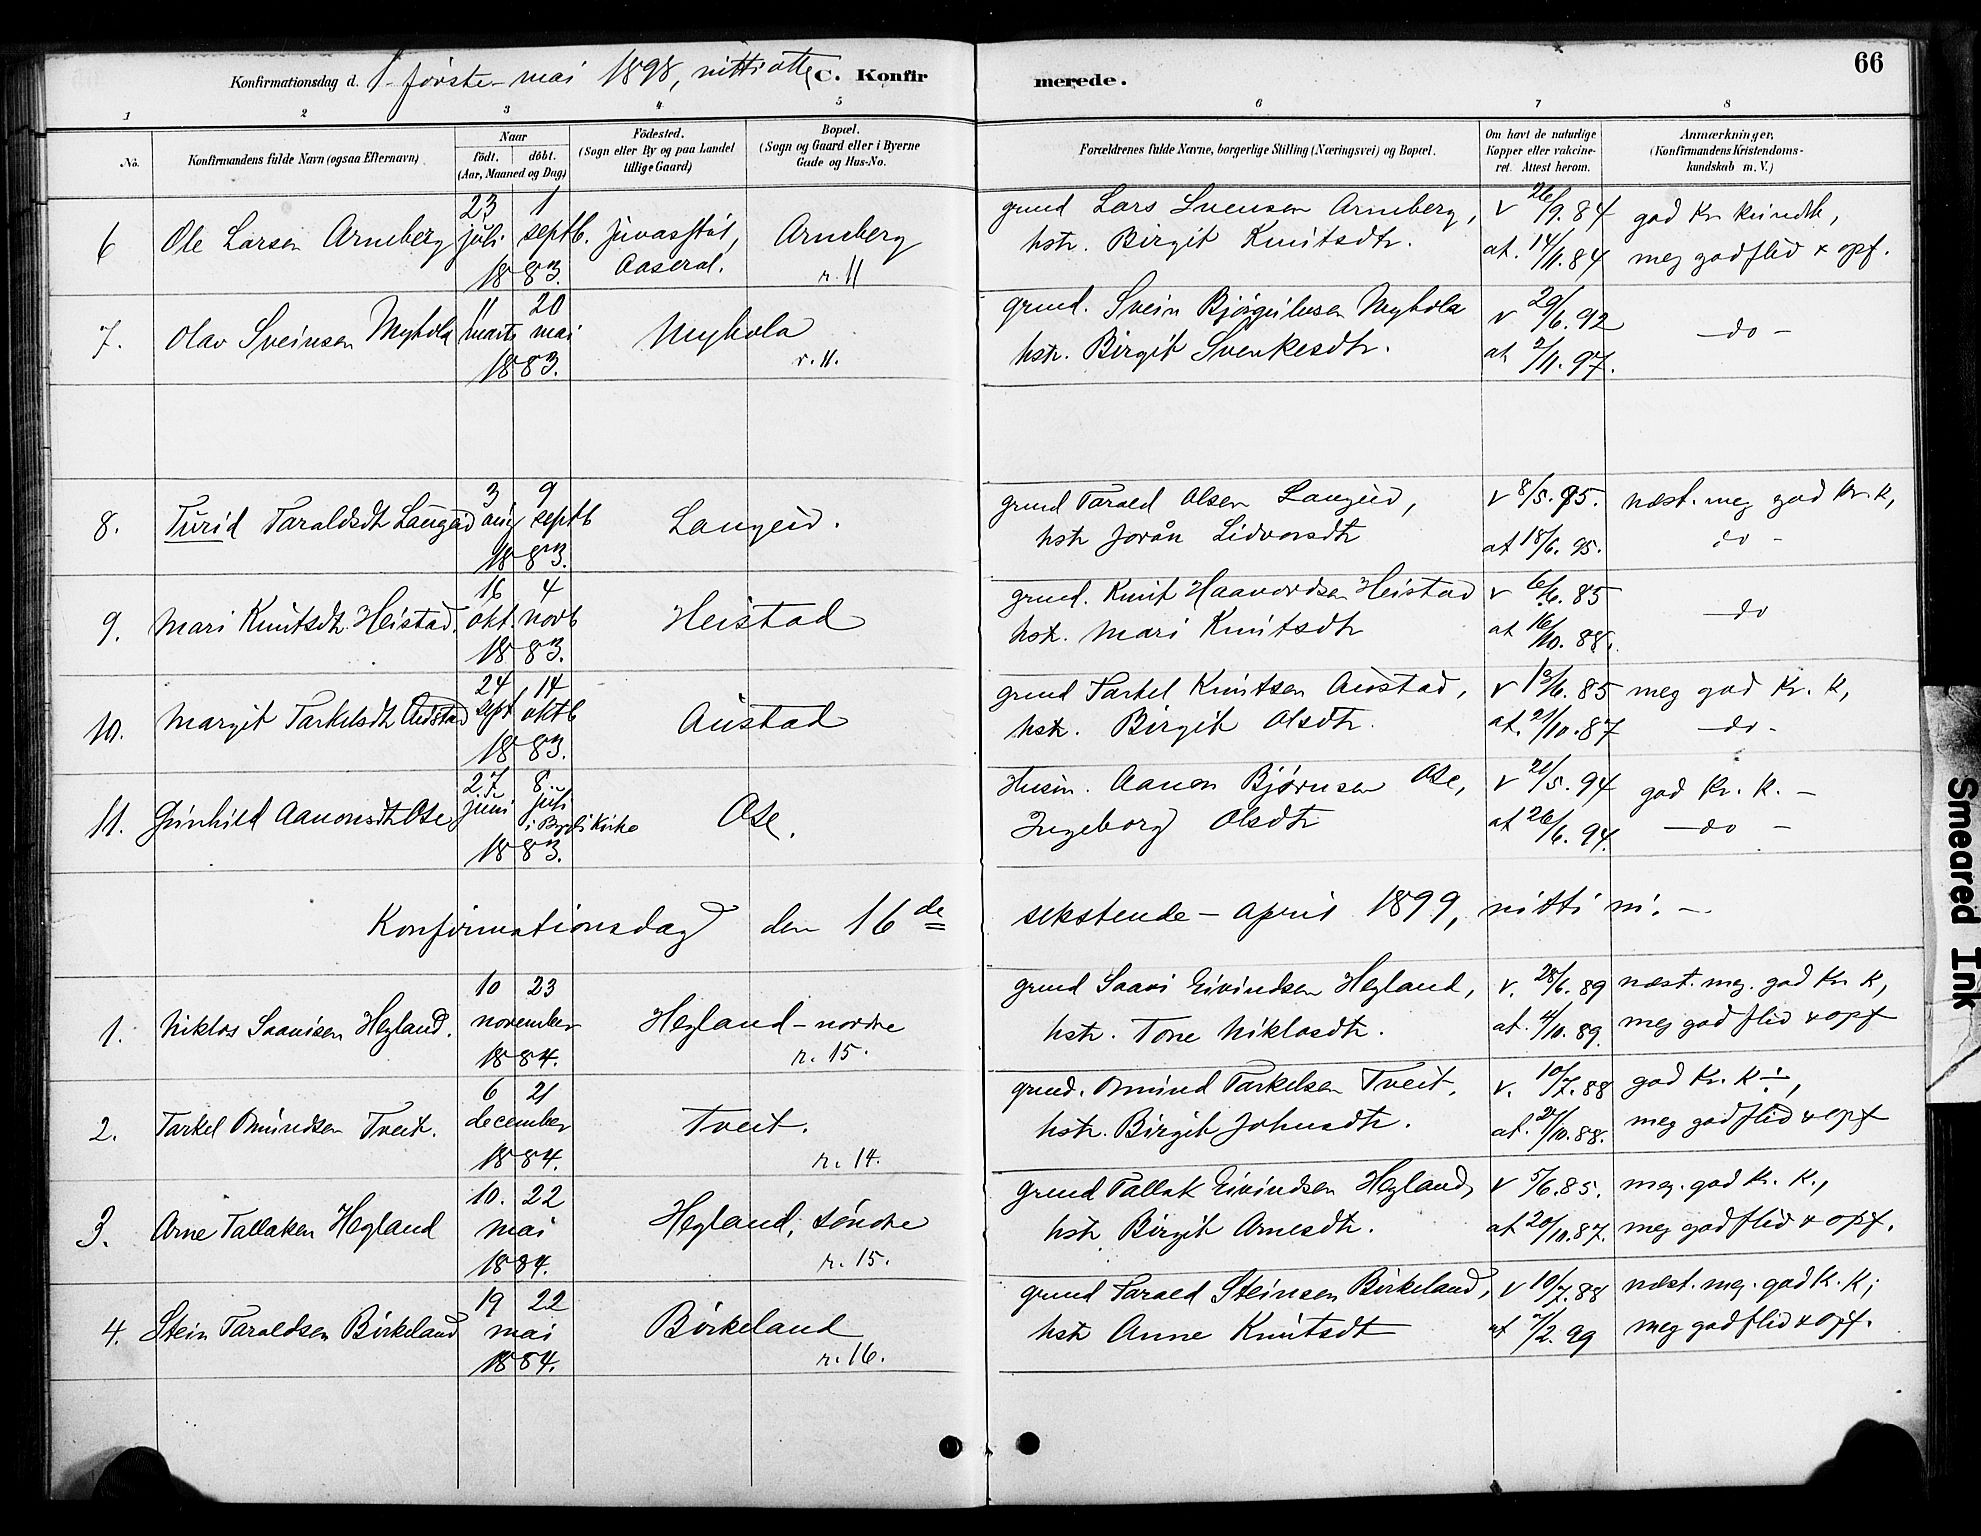 66
Konfirmationsdag d. 1 første mai 1898, nittiotte C. Konfirmerede.
1 2 3 4 5 6 7 8
No. Konfirmandens fulde Navn (ogsaa Efternavn) Naar født. døbt. (Aar, Maaned og Dag) Födested. (Sogn eller By og paa Landet tillige Gaard) Bopæl. (Sogn og Gaard eller i Byerne Gade og Hus-No. Forældrenes fulde Navne, borgerlige Stilling (Næringsvei) og Bopæl. Om havt de naturlige Kopper eller vakcineret. Attest herom. Anmærkninger, (Konfirmandens Kristendomskundskab m. V.)
23 1 grund Lars Svensen Arneberg, v 26/9.84 god Kr kundsk,
6 Ole Larsen Arneberg juli septb. Juvasstøl, Arneberg hstr. Birgit Knutsdtr. at. 14/11.84 meg god flid & opf.
1883. Aaseral. r. 11
11 20 grund. Svein Bjørgulvsen Myhola v 20/6.92
7. Olav Sveinsen Myhola marts mai Myhola hstr. Birgit Svenkesdtr. at 2/11.97. - do -
1883. r. 11.
3 9 grund Tarald Olsen Langeid, v 8/5.95. næst. meg god Kr. K,
8. Turid Taraldsdtr Langeid aug septb Langeid. hstr Jorån Lidvorsdtr at 18/6.95. do -
1883.
16 4 grund. Knut Haavordsen Heistad v 6/6.85
9. Mari Knutsdtr. Heistad. okt. novb Heistad hstr. Mari Knutsdtr at 16/10.88. - do
1883.
24 14 grund Tarkel Knutsen Austad, v 13/6.85 meg god Kr. K,
10. Margit Tarkelsdtr Austad sept oktb Austad hstr. Birgit Olsdtr. at. 21/10.87 - do -
1883.
27 8 Husm. Aanon Bjørnsen Ose, v 21/5.94 god Kr. K. -
11. Gunhild Aanonsdtr Ose juni juli i Bygl. Kirke Ose. Ingeborg Olsdtr at 26/6.94. - do -
1883.
Konfirmationsdag den 16de sekstende - april 1899, nitti ni. -
10 23 grund Saavi Eivindsen Hegland, v. 28/6.89 næst. meg. god Kr K,
1. Niklos Saavisen Hegland. november Hegland - nordre hstr. Tone Niklosdtr. at. 4/10.89. meg god flid & opf
1884. r. 15.
6 21 grund. Omund Tarkelsen Tveit, v. 10/7.88 god Kr. K ÷,
2. Tarkel Omundsen Tveit. december Tveit. hstr. Birgit Johnsdtr. at. 27/10.88. meg god flid & opf
1884. r. 14.
10. 22 grund Tallak Eivindsen Hegland, v 5/6.85. meg. god Kr. K.,
3. Arne Tallaksen Hegland mai Hegland, søndre hstr. Birgit Arnesdtr. at 20/10.87. meg god flid & opf.
1884. r. 15.
19 22 grund Tarald Steinsen Birkeland, v 10/7.88 næst. meg. god K. K;
4. Stein Taraldsen Birkeland mai Birkeland hstr Anne Knutsdtr at 7/2.99 meg god flid & opf.
1884. r. 16.
Smeared Ink